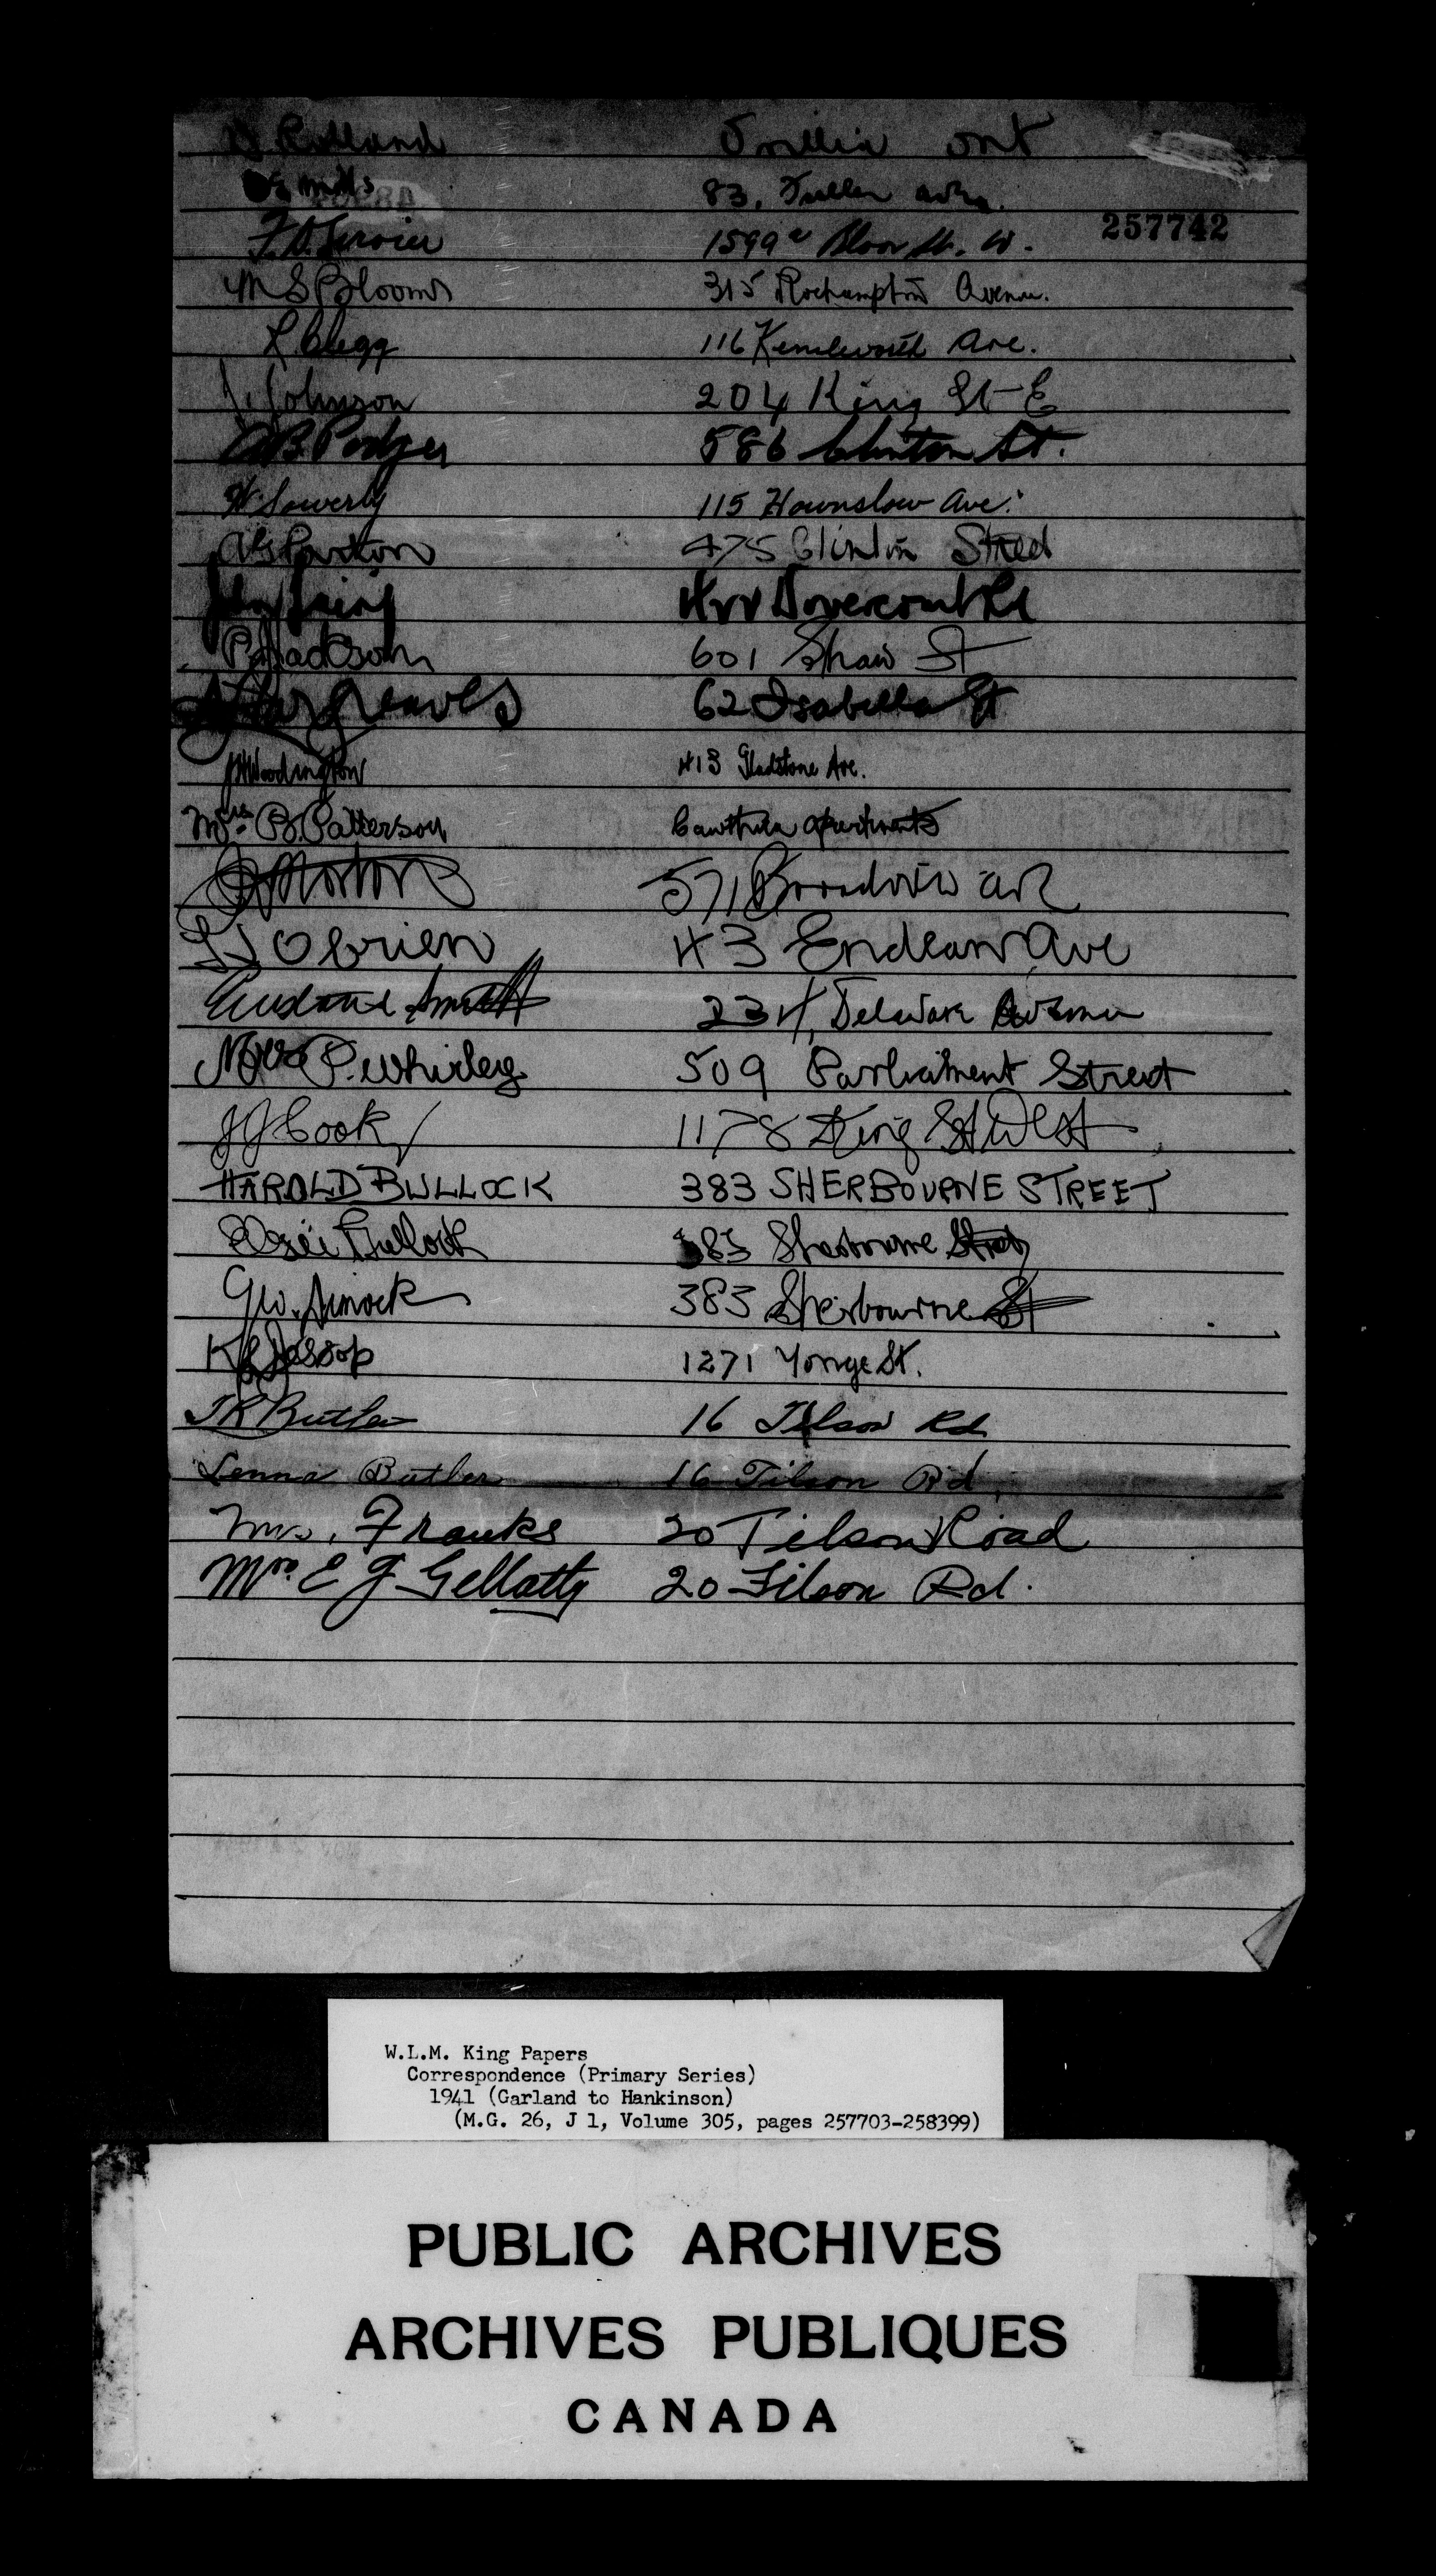 Orillia ont
Mills 83, Fuller ave.
257742
1599 Bloor St. W.
M S Blooms 315 Roehampton Avenue.
L. Clegg 116 Kenilworth Ave.
J. Johnson 204 King St-E
A B Podger 586 Clinton St.
H. Sowerby 115 Hounslow Ave.
475 Clinton Street
Dovercourt Rd
Jackson 601 Shaw St
Hargreaves 62 Isabella St
Woodington 413 Gladstone Ave.
Mrs. B. Patterson Cawthra apartments
Norton 571 Broadview ave
O Brien 43 Endean Ave
Smith 234, Delaware Avenue
Mrs P. Whirley 509 Parliament Street
J J Cook 1178 King St West
HAROLD BULLOCK 383 SHERBOURNE STREET
Bullock 383 Sherbourne Street
Geo. Sinock 383 Sherbourne St
Jessop 1271 Yonge St.
J R Butler 16 Tilson Rd
Lenna Butler 16 Tilson Rd.
Mrs. Franks 20 Tilson Road
Mrs. E J Gellatly 20 Tilson Rd.
W.L.M. King Papers
Correspondence (Primary Series)
1941 (Garland to Hankinson)
(M.G. 26, J 1, Volume 305, pages 257703-258399)
PUBLIC ARCHIVES
ARCHIVES PUBLIQUES
CANADA